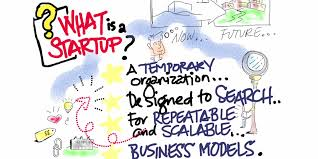 NOW...
FUTURE...
?
WHAT is a
STARTUP?
A TEMPORARY
organization...
Designed to SEARCH..
For REPEATABLE
and SCALABLE...
BUSINESS MODELS.